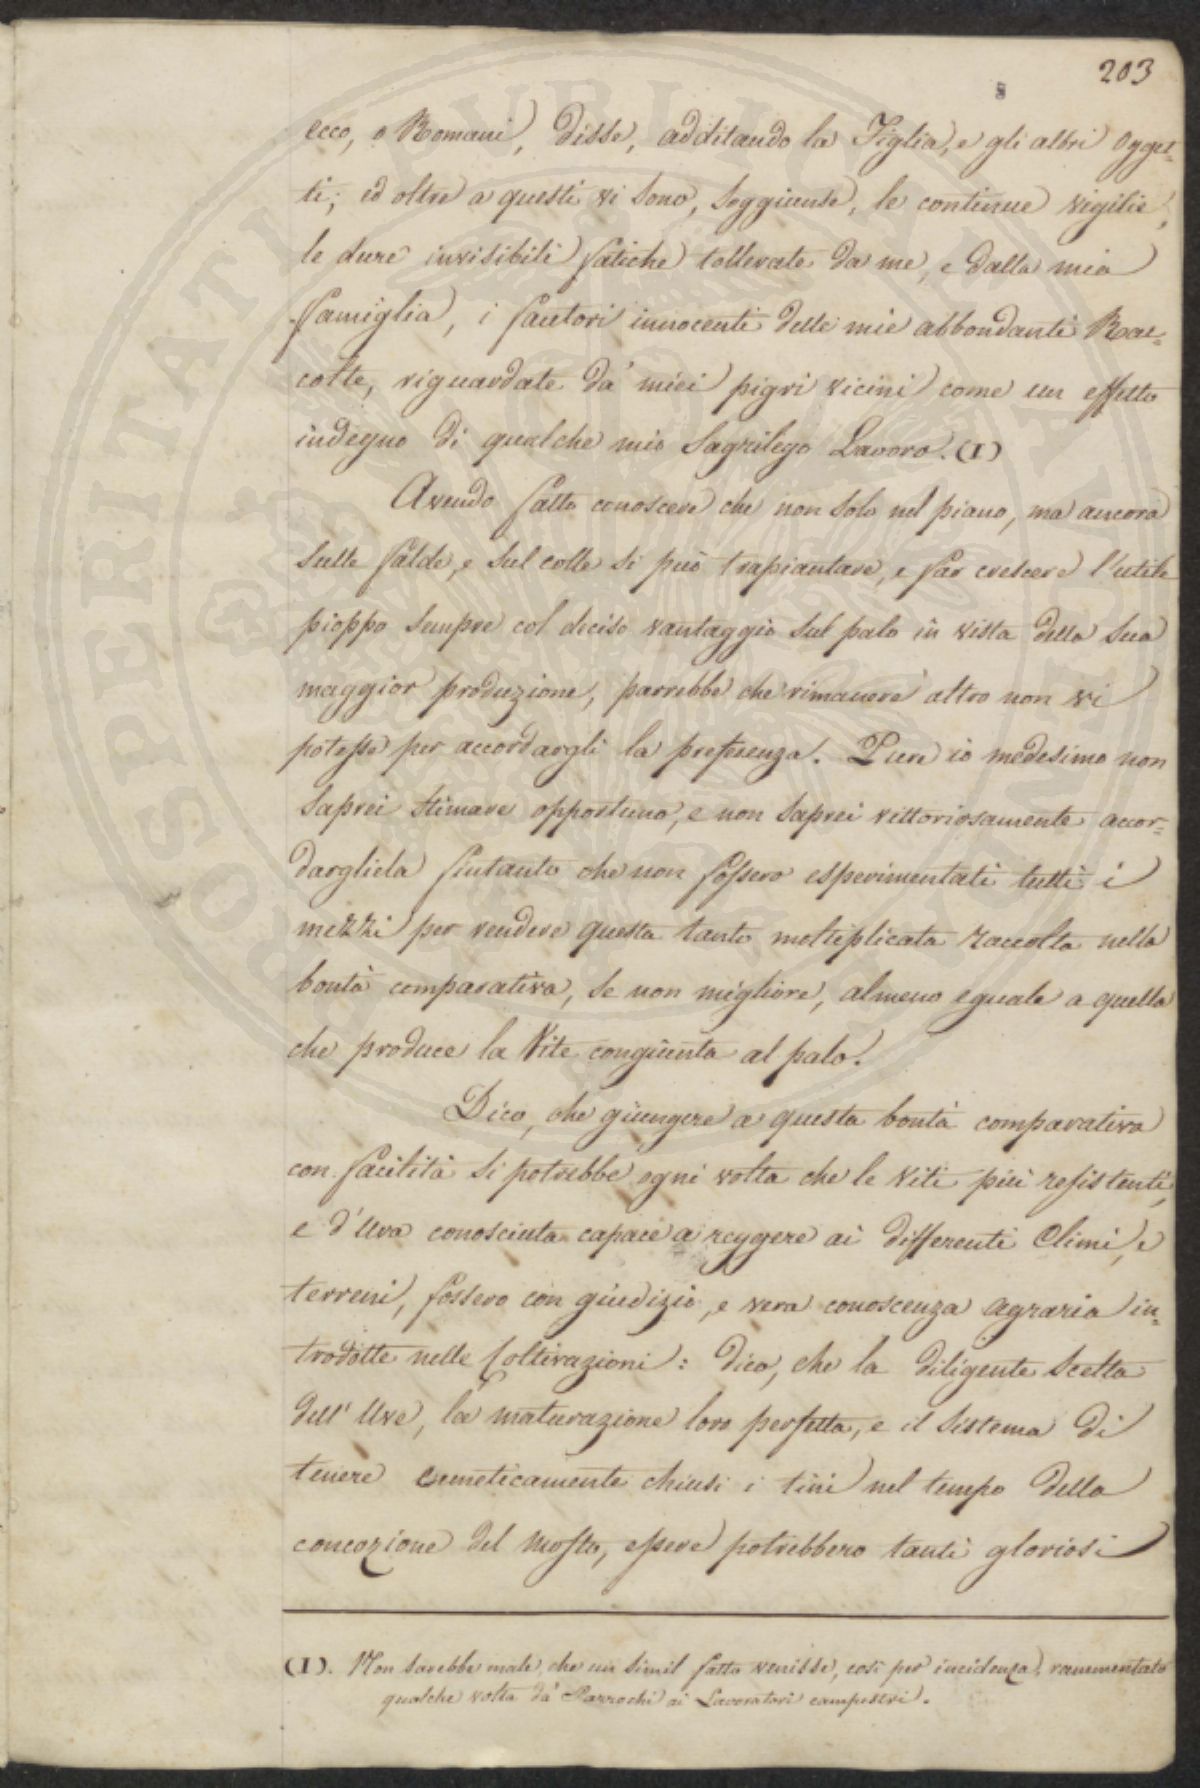 203
8
ecco, o Romani, disse, additando la Figlia, e gli altri ogget=
ti; ed oltre a questi vi sono, soggiunse, le continue vigilie,
le dure invisibili fatiche tollerate da me, e dalla mia
famiglia, i fautori innocenti delle mie abbondanti Rac=
colte, riguardate da' miei pigri vicini come un effetto
indegno di qualche mio sagrilego Lavoro. (I)
Avendo fatto conoscere che non solo nel piano, ma ancora
sulle falde, e sul colle si può trapiantare, e far crescere l'utile
pioppo sempre col deciso vantaggio sul palo in vista della sua
maggior produzione, parrebbe che rimanere altro non vi
potesse per accordargli la preferenza. Pure io medesimo non
saprei stimare opportuno, e non saprei vittoriosamente accor=
dargliela fintanto che non fossero esperimentati tutti i
mezzi per rendere questa tanto moltiplicata raccolta nella
bontà comparativa, se non migliore, almeno eguale a quella
che produce la Vite congiunta al palo.
Dico, che giungere a questa bontà comparativa
con facilità si potrebbe ogni volta che le Viti più resistenti,
e d'Uva conosciuta capace a reggere ai differenti Climi, e
terreni, fossero con giudizio, e vera conoscenza agraria in=
trodotte nelle Coltivazioni: dico, che la diligente scelta
dell'Uve, la maturazione loro perfetta, e il sistema di
tenere ermeticamente chiusi i tini nel tempo della
concozione del mosto, essere potrebbero tanti gloriosi
(I). Non sarebbe male, che un simil fatto venisse, così per incidenza, rammentato
qualche volta da' Parrochi ai Lavoratori campestri.
PROSPERITATI PVBLICAE AVGENDAE